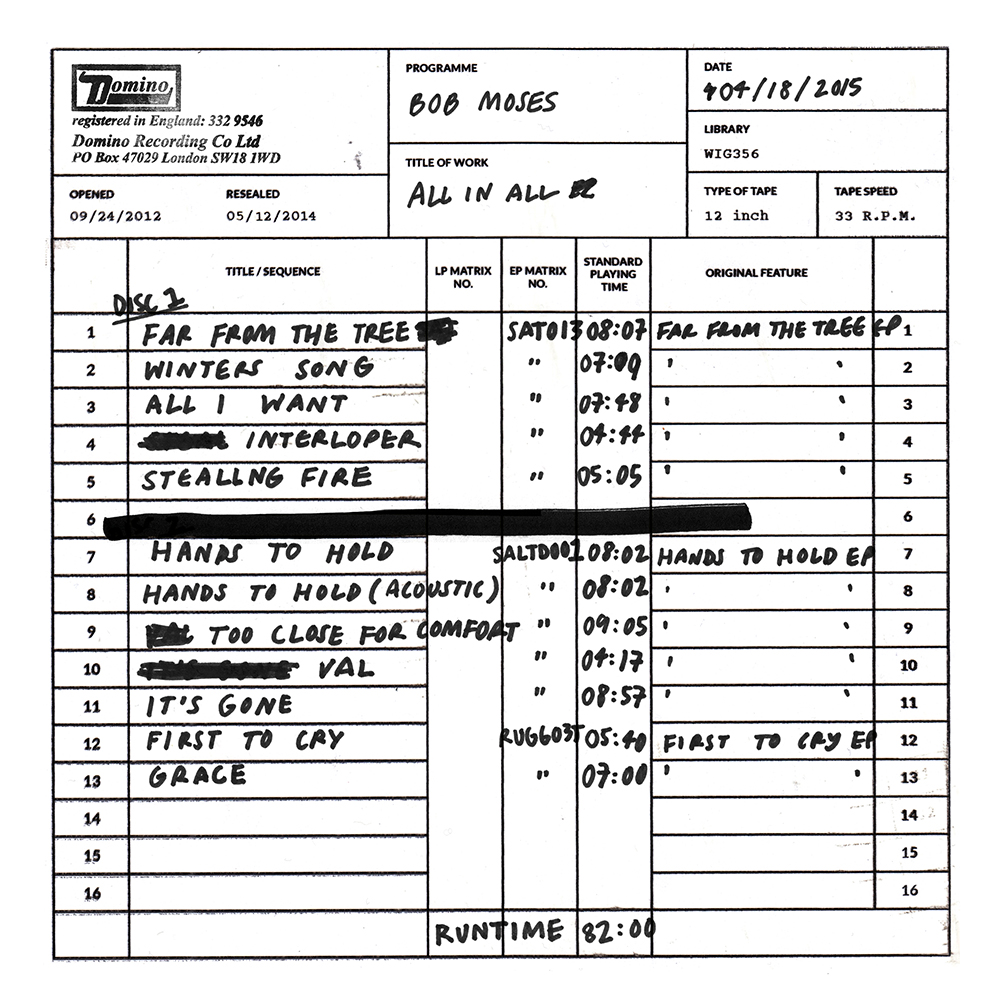 Domino
registered in England: 332 9546
Domino Recording Co Ltd
PO Box 47029 London SW18 1WD
PROGRAMME
BOB MOSES
DATE
04/18/2015
LIBRARY
WIG356
TITLE OF WORK
ALL IN ALL
OPENED RESEALED
09/24/2012 05/12/2014
TYPE OF TAPE TAPE SPEED
12 inch 33 R.P.M.
TITLE / SEQUENCE LP MATRIX NO. EP MATRIX NO. STANDARD PLAYING TIME ORIGINAL FEATURE
DISC 1
1 FAR FROM THE TREE SAT013 08:07 FAR FROM THE TREE EP 1
2 WINTERS SONG " 07:09 ' ' 2
3 ALL I WANT " 07:48 ' ' 3
4 INTERLOPER " 04:44 ' ' 4
5 STEALLNG FIRE " 05:05 ' ' 5
6 6
7 HANDS TO HOLD SALTD001 08:02 HANDS TO HOLD EP 7
8 HANDS TO HOLD (ACOUSTIC) " 08:02 ' ' 8
9 TOO CLOSE FOR COMFORT " 09:05 ' ' 9
10 VAL " 04:17 ' ' 10
11 IT'S GONE " 08:57 ' ' 11
12 FIRST TO CRY RUG603T 05:40 FIRST TO CRY EP 12
13 GRACE " 07:00 ' ' 13
14 14
15 15
16 16
RUNTIME 82:00